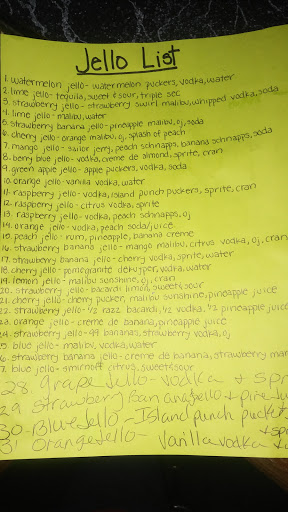 Jello List
1. watermelon jello- watermelon puckers, vodka, water
2. lime jello- tequila, sweet & sour, triple sec
3. strawberry jello- strawberry swirl malibu, whipped vodka, soda
4. lime jello- malibu, water
5. strawberry banana jello- pineapple malibu, oj, soda
6. cherry jello- orange malibu, oj, splash of peach
7. mango jello- sailor jerry, peach schnapps, banana schnapps, soda
8. berry blue jello- vodka, creme de almond, sprite, cran
9. green apple jello- apple puckers, vodka, soda
10. orange jello- vanilla vodka, water
11. raspberry jello- vodka, island punch puckers, sprite, cran
12. raspberry jello- citrus vodka, sprite
13. raspberry jello- vodka, peach schnapps, oj
14. orange jello- vodka, peach soda/juice
15. peach jello- rum, pineapple, banana creme
16. strawberry banana jello- mango malibu, citrus vodka, oj, cran
17. strawberry banana jello- cherry vodka, sprite, water
18. cherry jello- pomegranite dekuyper, vodka, water
19. lemon jello- malibu sunshine, oj, cran
20. strawberry jello- bacardi limon, sweet & sour
21. cherry jello- cherry pucker, malibu sunshine, pineapple juice
22. strawberry jello- 1/2 razz bacardi, 1/2 vodka, 1/2 pineapple juice
23. orange jello- creme de banana, pineapple juice
24. strawberry jello- 99 bananas, strawberry vodka, oj
5. blue jello- malibu, vodka, water
6. strawberry banana jello- creme de banana, strawberry
7. blue jello- smirnoff citrus, sweet & sour
28. grape Jello- vodka & spr
29 strawberry banana jello &
30- Blue Jello- Island punch pucker
31 Orange jello- Vanilla vodka &